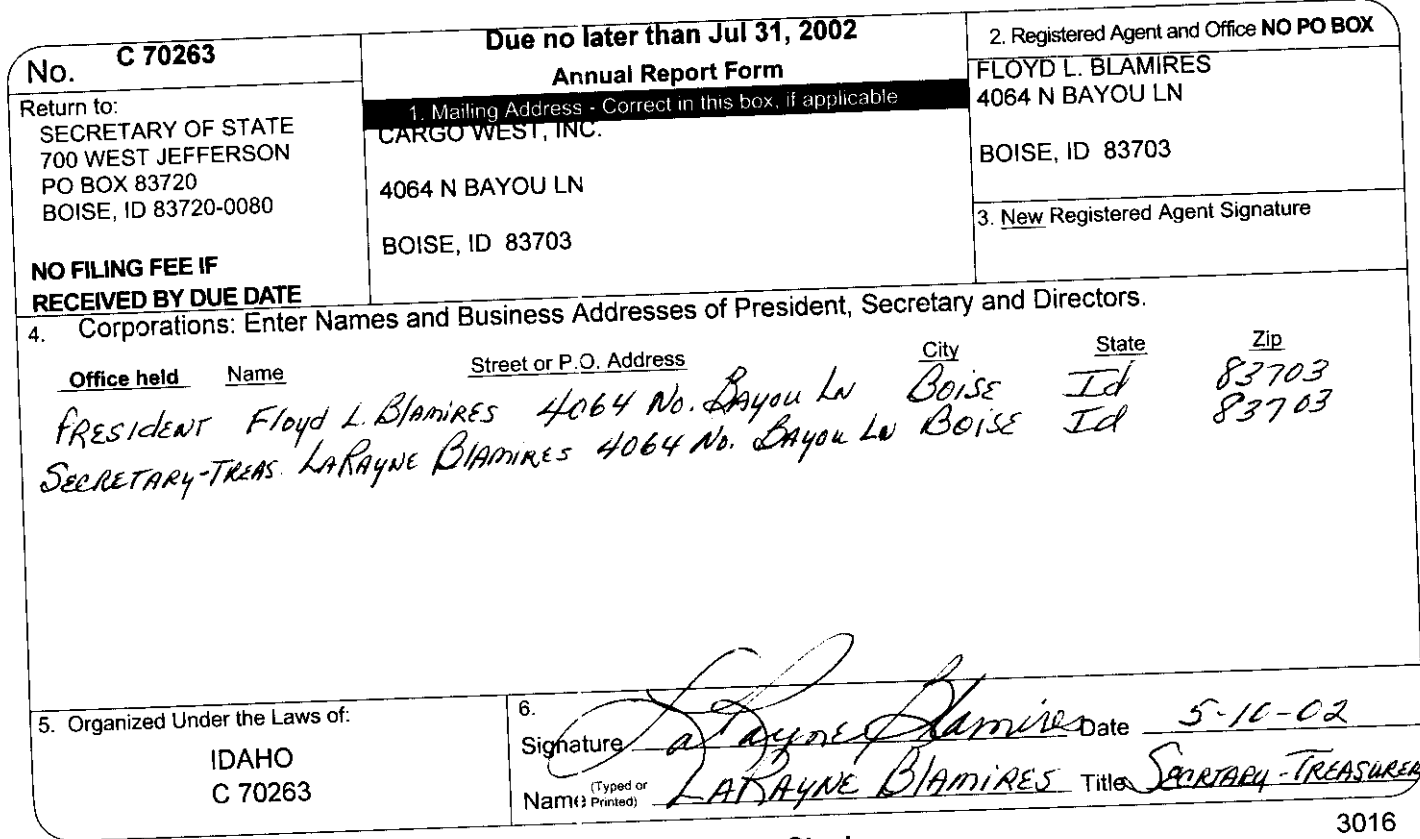 No. C 70263
Return to:
SECRETARY OF STATE
700 WEST JEFFERSON
PO BOX 83720
BOISE, ID 83720-0080
NO FILING FEE IF
RECEIVED BY DUE DATE
Due no later than Jul 31, 2002
Annual Report Form
1. Mailing Address - Correct in this box, if applicable
CARGO WEST, INC.
4064 N BAYOU LN
BOISE, ID 83703
2. Registered Agent and Office NO PO BOX
FLOYD L. BLAMIRES
4064 N BAYOU LN
BOISE, ID 83703
3. New Registered Agent Signature
4. Corporations: Enter Names and Business Addresses of President, Secretary and Directors.
Office held Name Street or P.O. Address City State Zip
PRESIDENT Floyd L. BlAmiRES 4064 No. BAyou LN BOiSE Id 83703
SECRETARy-TREAS. LARAyNE BlAmiRES 4064 No. BAyou LN BOiSE Id 83703
5. Organized Under the Laws of:
IDAHO
C 70263
6.
Signature LaRayne Blamires Date 5-10-02
Name (Typed or Printed) LARAYNE BlAmiRES Title SECRTARY-TREASURER
3016